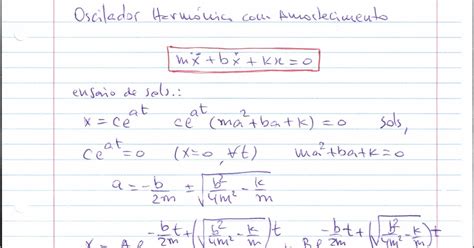 Oscilador Harmónico com Amortecimento
mẍ + bẋ + kx = 0
ensaio de sols.:
x = ce^{at} ce^{at}(ma² + ba + k) = 0 sols,
ce^{at} = 0 (x = 0, ∀t) ma² + ba + k = 0
a = -b/2m ± √(b²/4m² - k/m)
x = A e^{-b/2m t + √(b²/4m² - k/m) t} B e^{-b/2m t + √(b²/4m² - k/m) t}